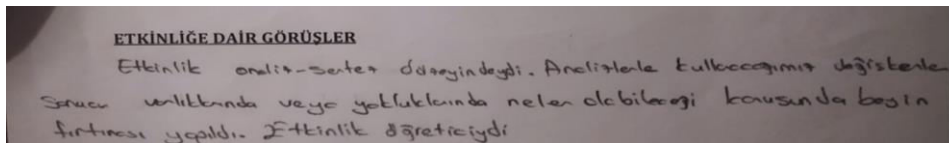 ETKİNLİĞE DAİR GÖRÜŞLER
Etkinlik analiz-sentez düzeyindeydi. Analizlerle kullanacağımız değişkenle
sonucu varlıklarında veya yokluklarında neler olabileceği konusunda beyin
fırtınası yapıldı. Etkinlik öğreticiydi